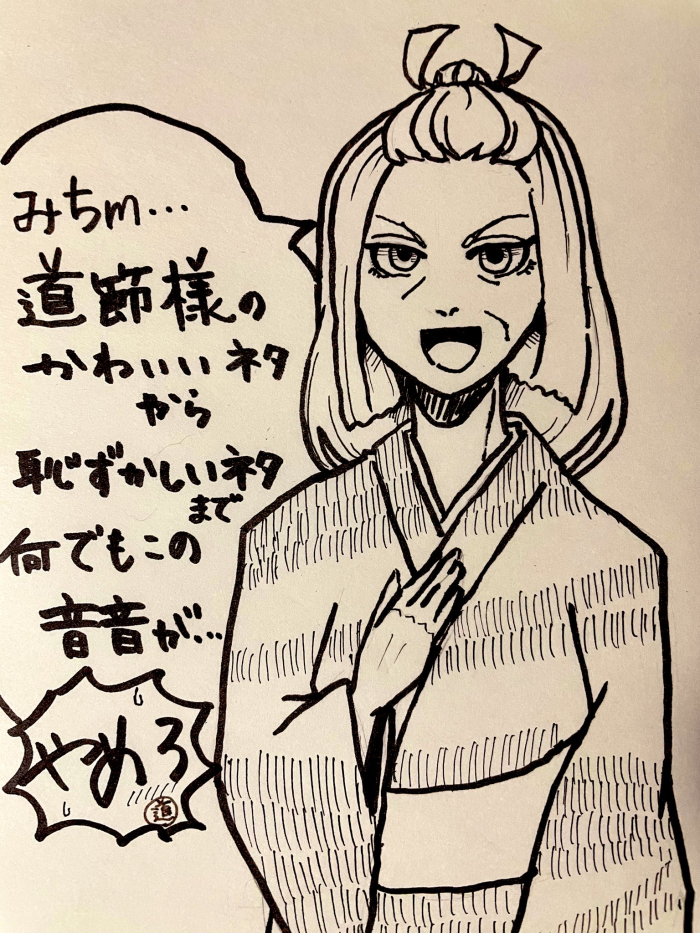 みちm…
道節様の
かわいいネタ
から
恥ずかしいネタ
まで
何でもこの
音音が…
やめろ
道